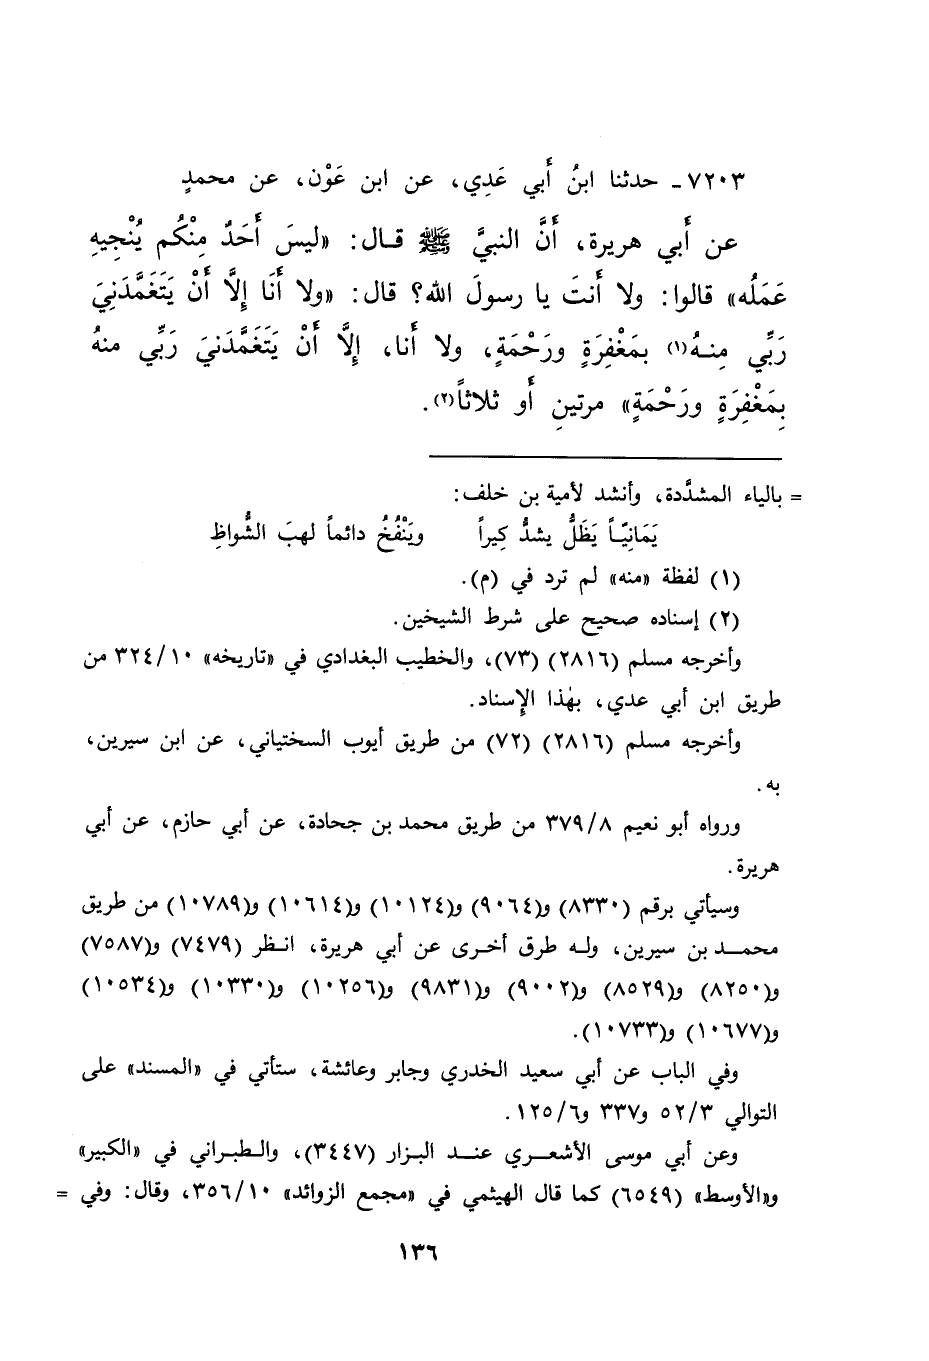 ٧٢٠٣ـ حدثنا ابنُ أَبي عَدِي، عن ابن عَوْن، عن محمدٍ
عن أَبي هريرة، أَنَّ النبيَّ ﷺ قـال: «ليسَ أَحَدٌ مِنْكُم يُنْجِيهِ
عَمَلُه» قالوا: ولا أَنتَ يا رسولَ الله؟ قال: «ولا أَنَا إِلَّا أَنْ يَتَغَمَّدَنِيَ
رَبِّي مِنـهُ(١) بمَغْفِرَةٍ ورَحْمَةٍ، ولا أَنا، إِلَّا أَنْ يَتَغَمَّدَنيَ رَبِّي منهُ
بِمَغْفِرَةٍ ورَحْمَةٍ» مرتينِ أَو ثلاثاً(٢).
= بالياء المشدَّدة، وأنشد لأمية بن خلف:
يَمَانِيّـاً يَظَلُّ يشدُّ كِيراً ويَنْفُخُ دائماً لهبَ الشُّواظِ
(١) لفظة «منه» لم ترد في (م).
(٢) إسناده صحيح على شرط الشيخين.
وأخرجه مسلم (٢٨١٦) (٧٣)، والخطيب البغدادي في «تاريخه» ٣٢٤/١٠ من
طريق ابن أبي عدي، بهٰذا الإِسناد.
وأخرجه مسلم (٢٨١٦) (٧٢) من طريق أيوب السختياني، عن ابن سيرين،
به.
ورواه أبو نعيم ٣٧٩/٨ من طريق محمد بن جحادة، عن أبي حازم، عن أبي
هريرة.
وسيأتي برقم (٨٣٣٠) و(٩٠٦٤) و(١٠١٢٤) و(١٠٦١٤) و(١٠٧٨٩) من طريق
محمـــد بن سيرين، ولـه طرق أخـرى عن أبي هريرة، انـظر (٧٤٧٩) و(٧٥٨٧)
و(٨٢٥٠) و(٨٥٢٩) و(٩٠٠٢) و(٩٨٣١) و(١٠٢٥٦) و(١٠٣٣٠) و(١٠٥٣٤)
و(١٠٦٧٧) و(١٠٧٣٣).
وفي الباب عن أبي سعيد الخدري وجابر وعائشة، ستأتي في «المسند» على
التوالي ٥٢/٣ و٣٣٧ و١٢٥/٦.
وعن أبي موسى الأشعــري عنــد البـزار (٣٤٤٧)، والـطبراني في «الكبير»
و«الأوسط» (٦٥٤٩) كما قال الهيثمي في «مجمع الزوائد» ٣٥٦/١٠، وقال: وفي =
١٣٦